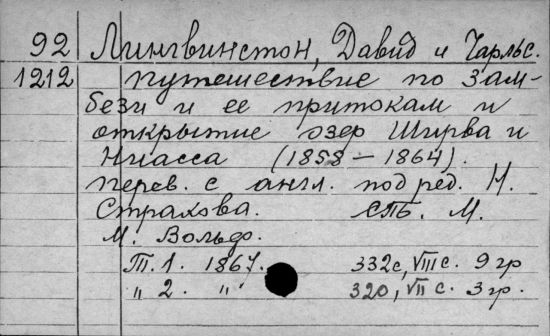 92 Лингвинстон, Давид и Чарльс.
1212 Путешествие по Зам-
бези и ее притокам и
открытие озер Ширва и
Ниасса (1858 — 1864).
Перев. с англ. под ред. Н.
Страхова. СПб. М.
М. Вольф.
Т. 1. 1867. 332с, VIII с. 9 гр
" 2. " 320, VII с. 3 гр.